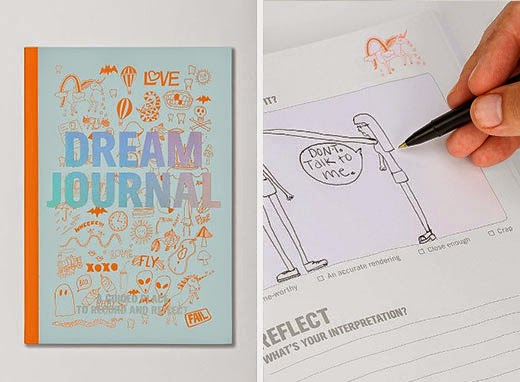 LOVE
DREAM
JOURNAL
WHEEEEE!
XOXO
FLY
A GUIDED PLACE
TO RECORD AND REFLECT
FAIL
IT?
DON'T
TALK TO
ME.
me-worthy
An accurate rendering
Close enough
Crap
REFLECT
WHAT'S YOUR INTERPRETATION?